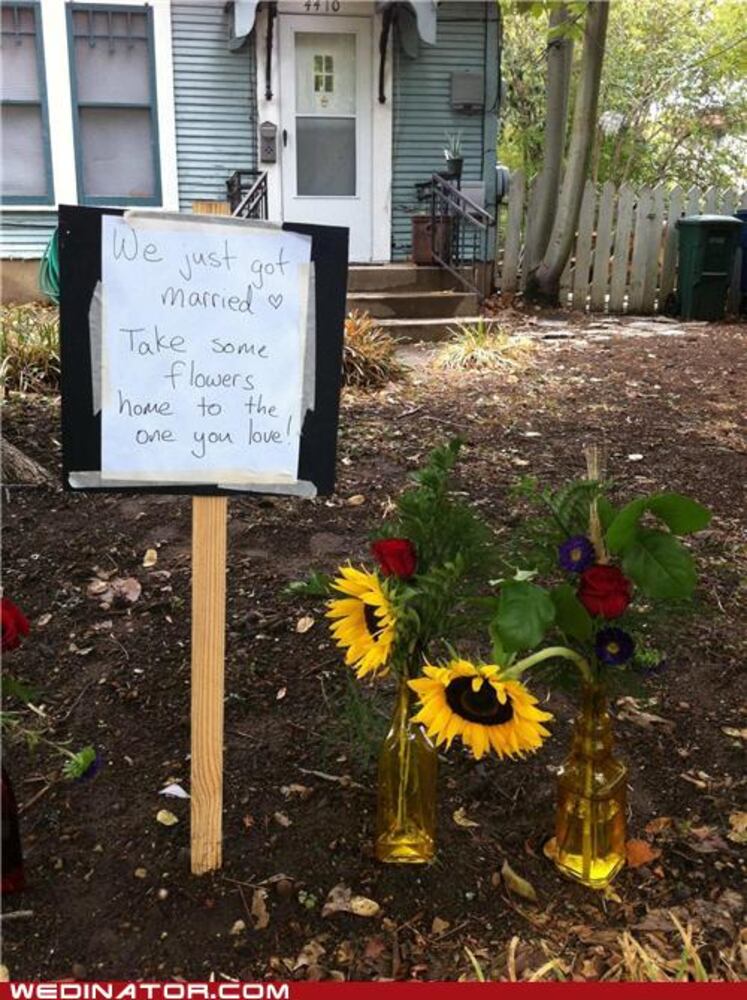 4410
We just got
married ♡
Take some
flowers
home to the
one you love!
WEDINATOR.COM